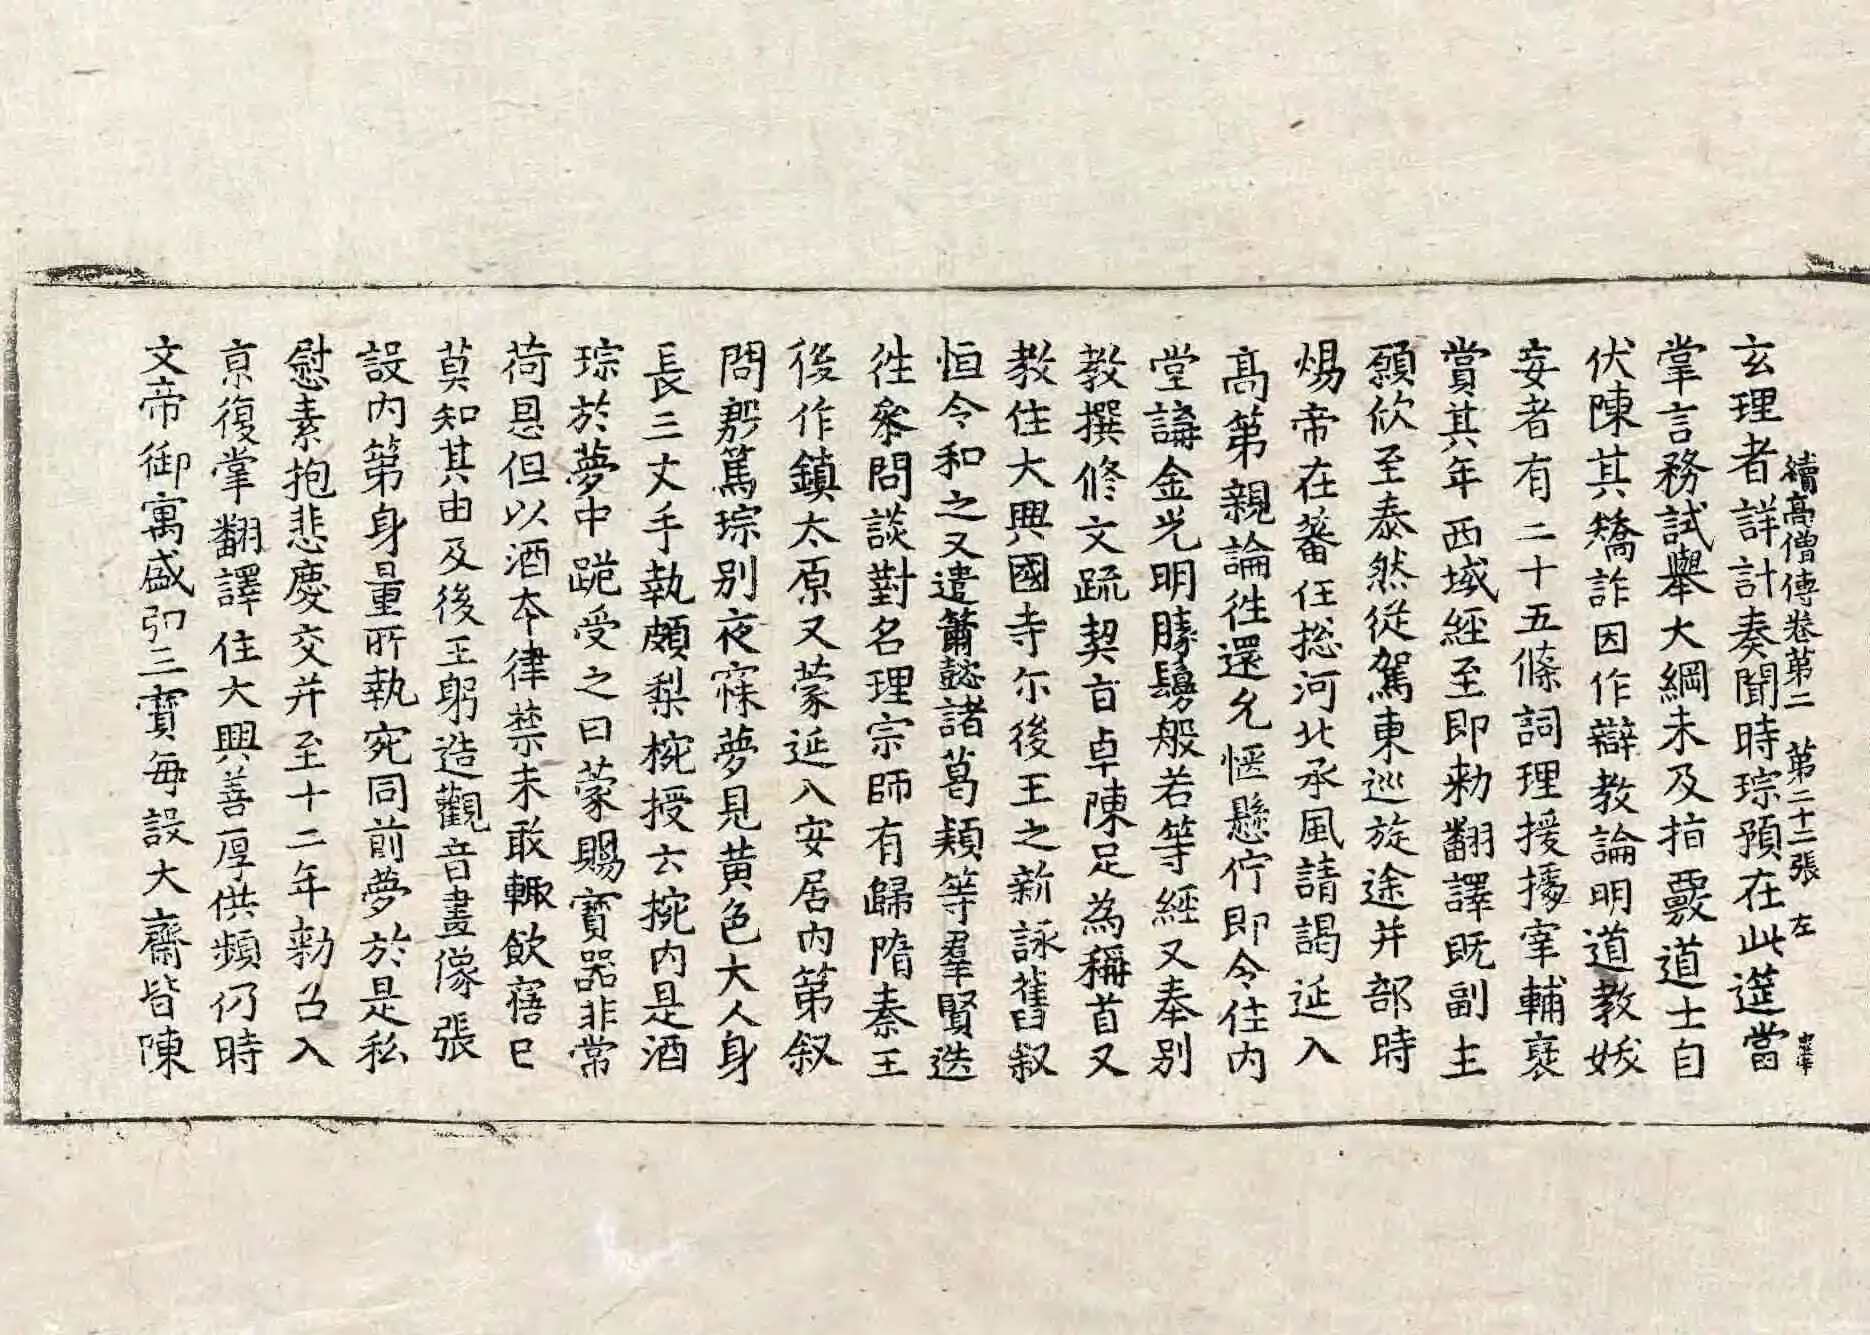 玄理者詳計奏聞時琮預在此筵當
續高僧傳卷第二 第二十二張 左
掌言務試舉大綱未及指覈道士自
伏陳其矯詐因作辯教論明道教妖
妄者有二十五條詞理援據宰輔褒
賞其年西域經至即勑翻譯既副生
願欣至泰然從駕東巡旋途并部時
煬帝在蕃任摠河北承風請謁延入
高第親論徃還允愜懸佇即令住內
堂講金光明勝鬘般若等經又奉別
教撰修文疏契旨卓陳足為稱首又
教住大興國寺尔後王之新詠舊叙
恒令和之又遣蕭懿諸葛潁等羣賢迭
徃叅問談對名理宗師有歸隋秦王
後作鎮太原又蒙延入安居內第叙
問慇篤琮別夜寐夢見黃色大人身
長三丈手執頗梨椀授云椀內是酒
琮於夢中跪受之曰蒙賜寶器非常
荷恩但以酒夲律禁未敢輙飲寤已
莫知其由及後王躬造觀音畫像張
設內第身量所執宛同前夢於是私
慰素抱悲慶交并至十二年勑召入
亰復掌翻譯住大興善厚供頻仍時
文帝御㝢盛弘三寶每設大齋皆陳